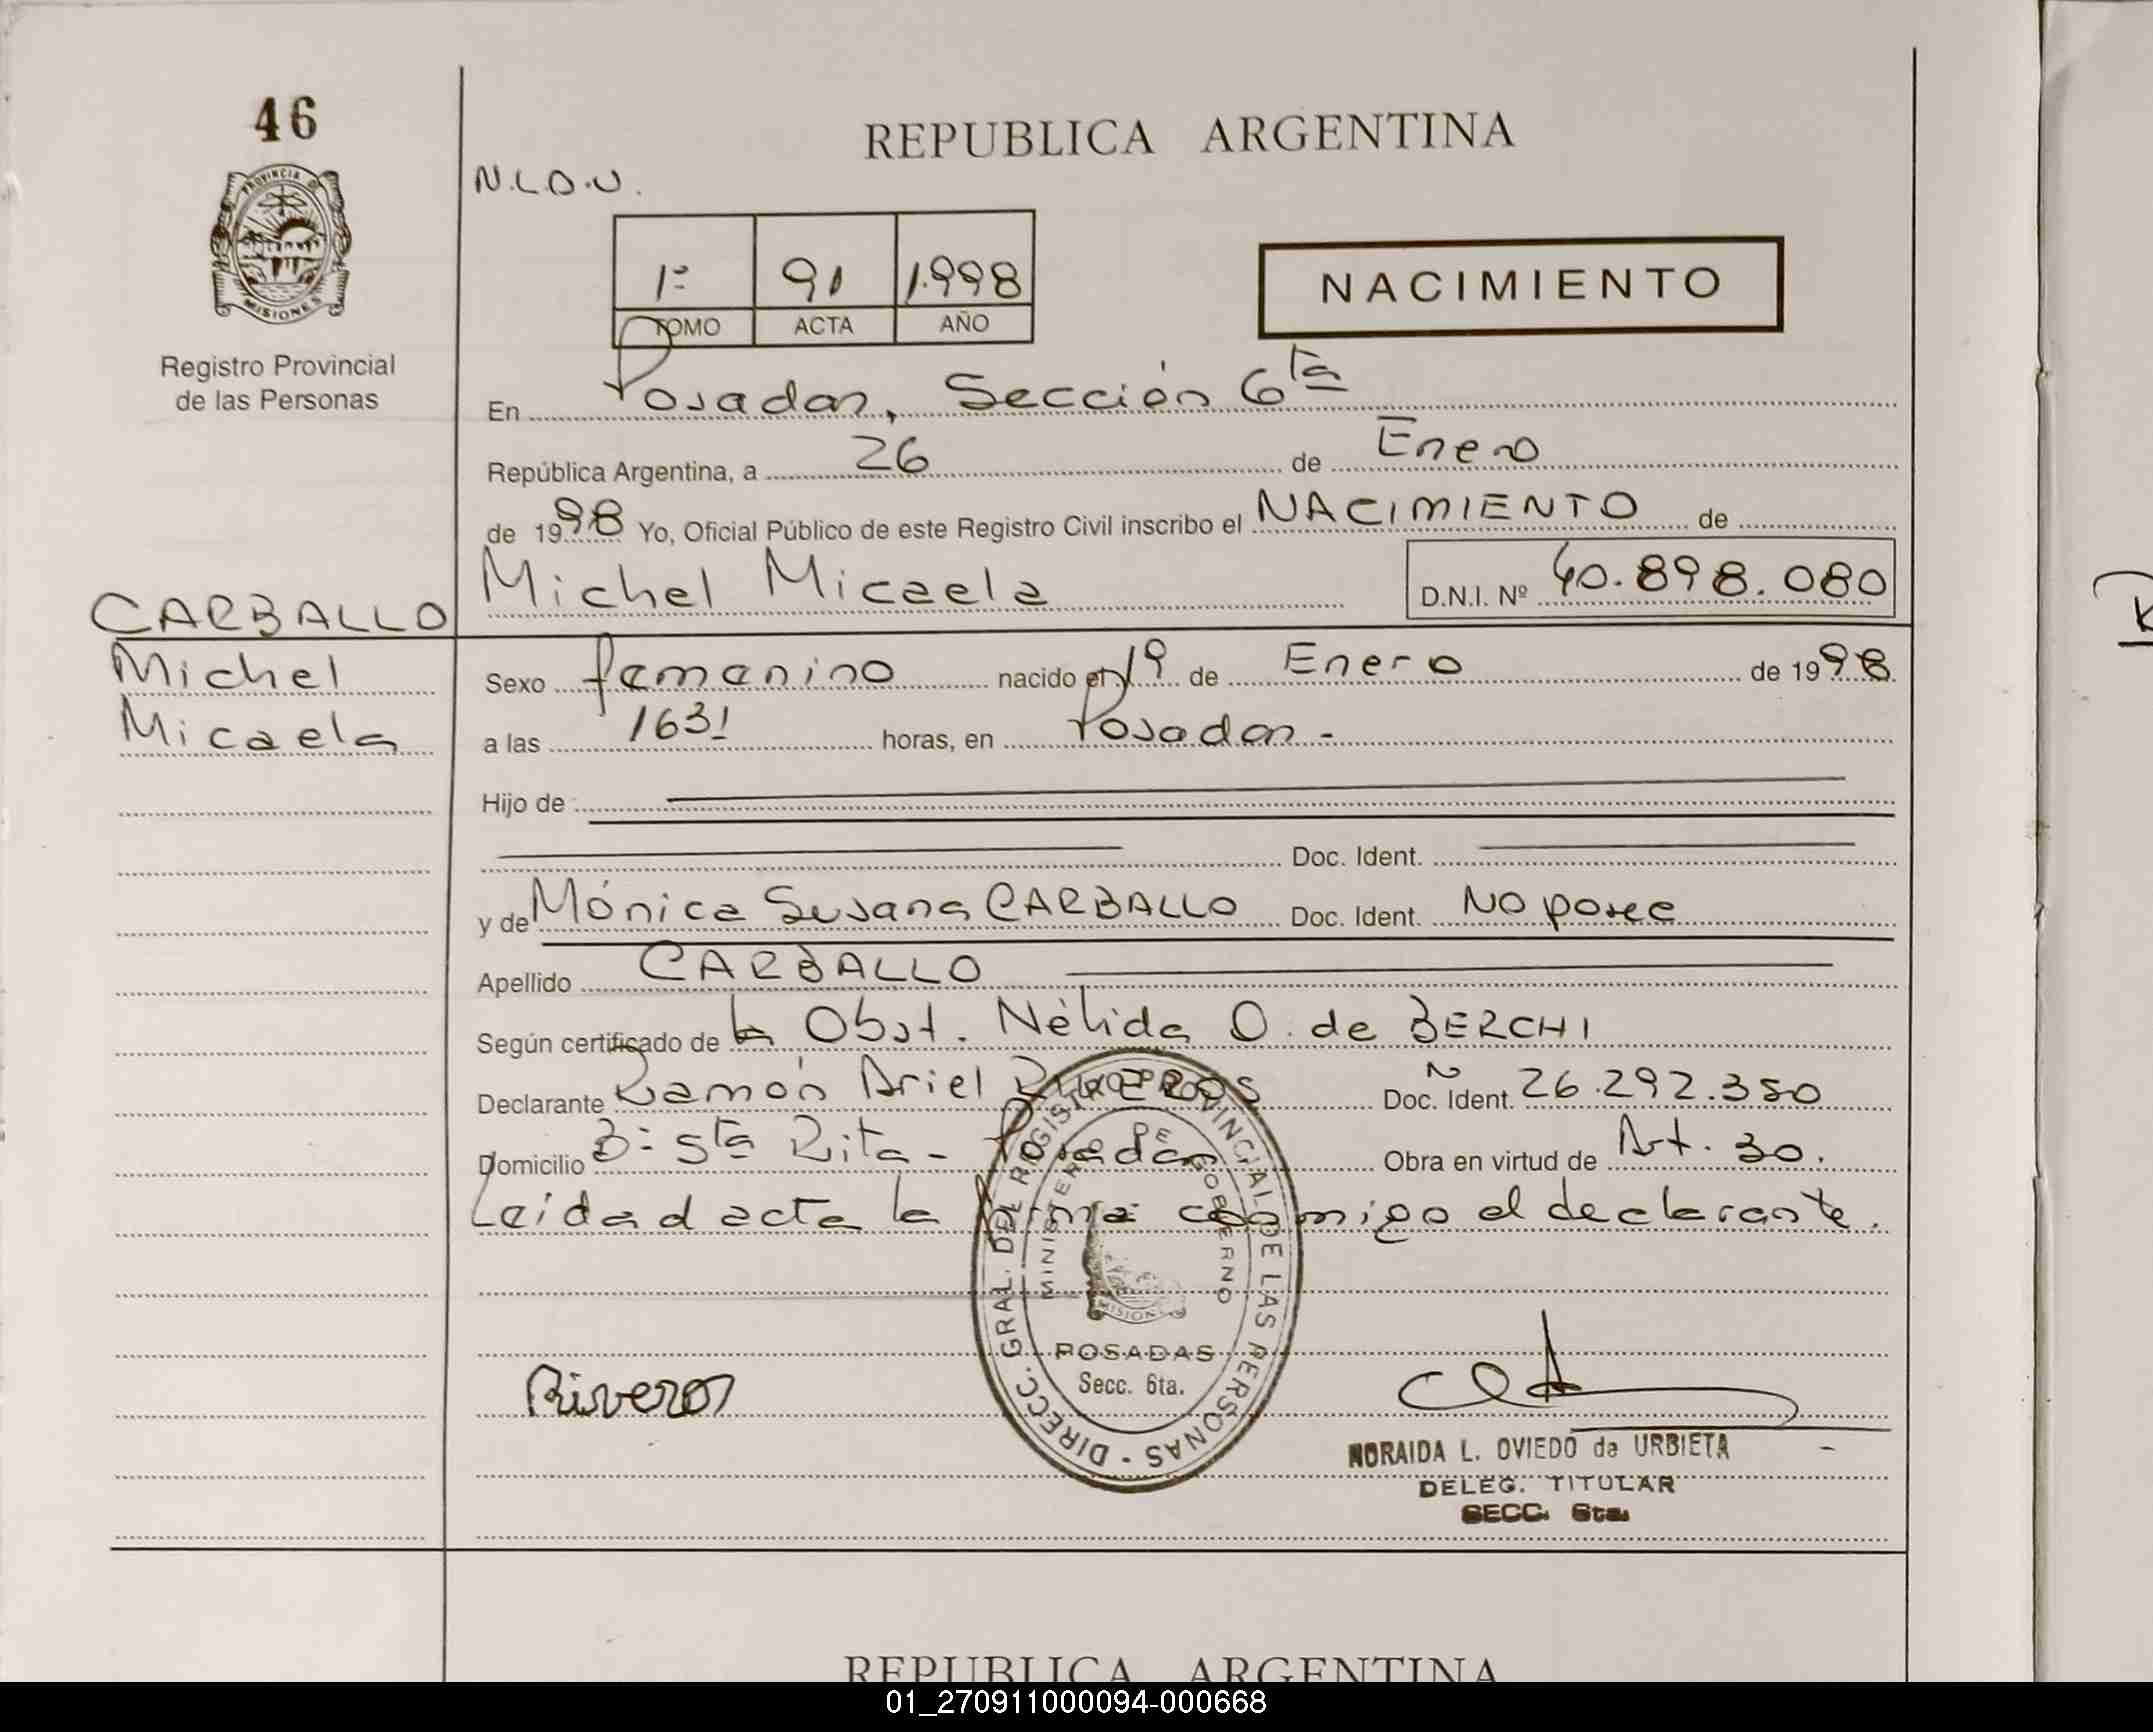 46
REPUBLICA ARGENTINA
N.L.D.U.
PROVINCIA DE MISIONES
1º 91 1.998
TOMO ACTA AÑO
NACIMIENTO
Registro Provincial
de las Personas
En Posadas, Sección 6ta
República Argentina, a 26 de Enero
de 1998 Yo, Oficial Público de este Registro Civil inscribo el NACIMIENTO de
Michel Micaela D.N.I. Nº 40.898.080
CARBALLO
Michel
Micaela
Sexo femenino nacido el 19 de Enero de 1998
a las 1631 horas, en Posadas.-
Hijo de
Doc. Ident.
y de Mónica Susana CARBALLO Doc. Ident. No posee
Apellido CARBALLO
Según certificado de la Obst. Nélida O. de BERCHI
Declarante Ramón Ariel Doc. Ident. 26.292.350
Domicilio Bº Sta Rita - Posadas Obra en virtud de Art. 30.
Leida el acta la firma conmigo el declarante.
DIRECC. GRAL. DEL REGISTRO PROVINCIAL DE LAS PERSONAS -
MINISTERIO DE GOBIERNO
MISIONES
POSADAS
Secc. 6ta.
Riveros
NORAIDA L. OVIEDO de URBIETA
DELEG. TITULAR
SECC. 6ta.
REPUBLICA ARGENTINA
01_270911000094-000668